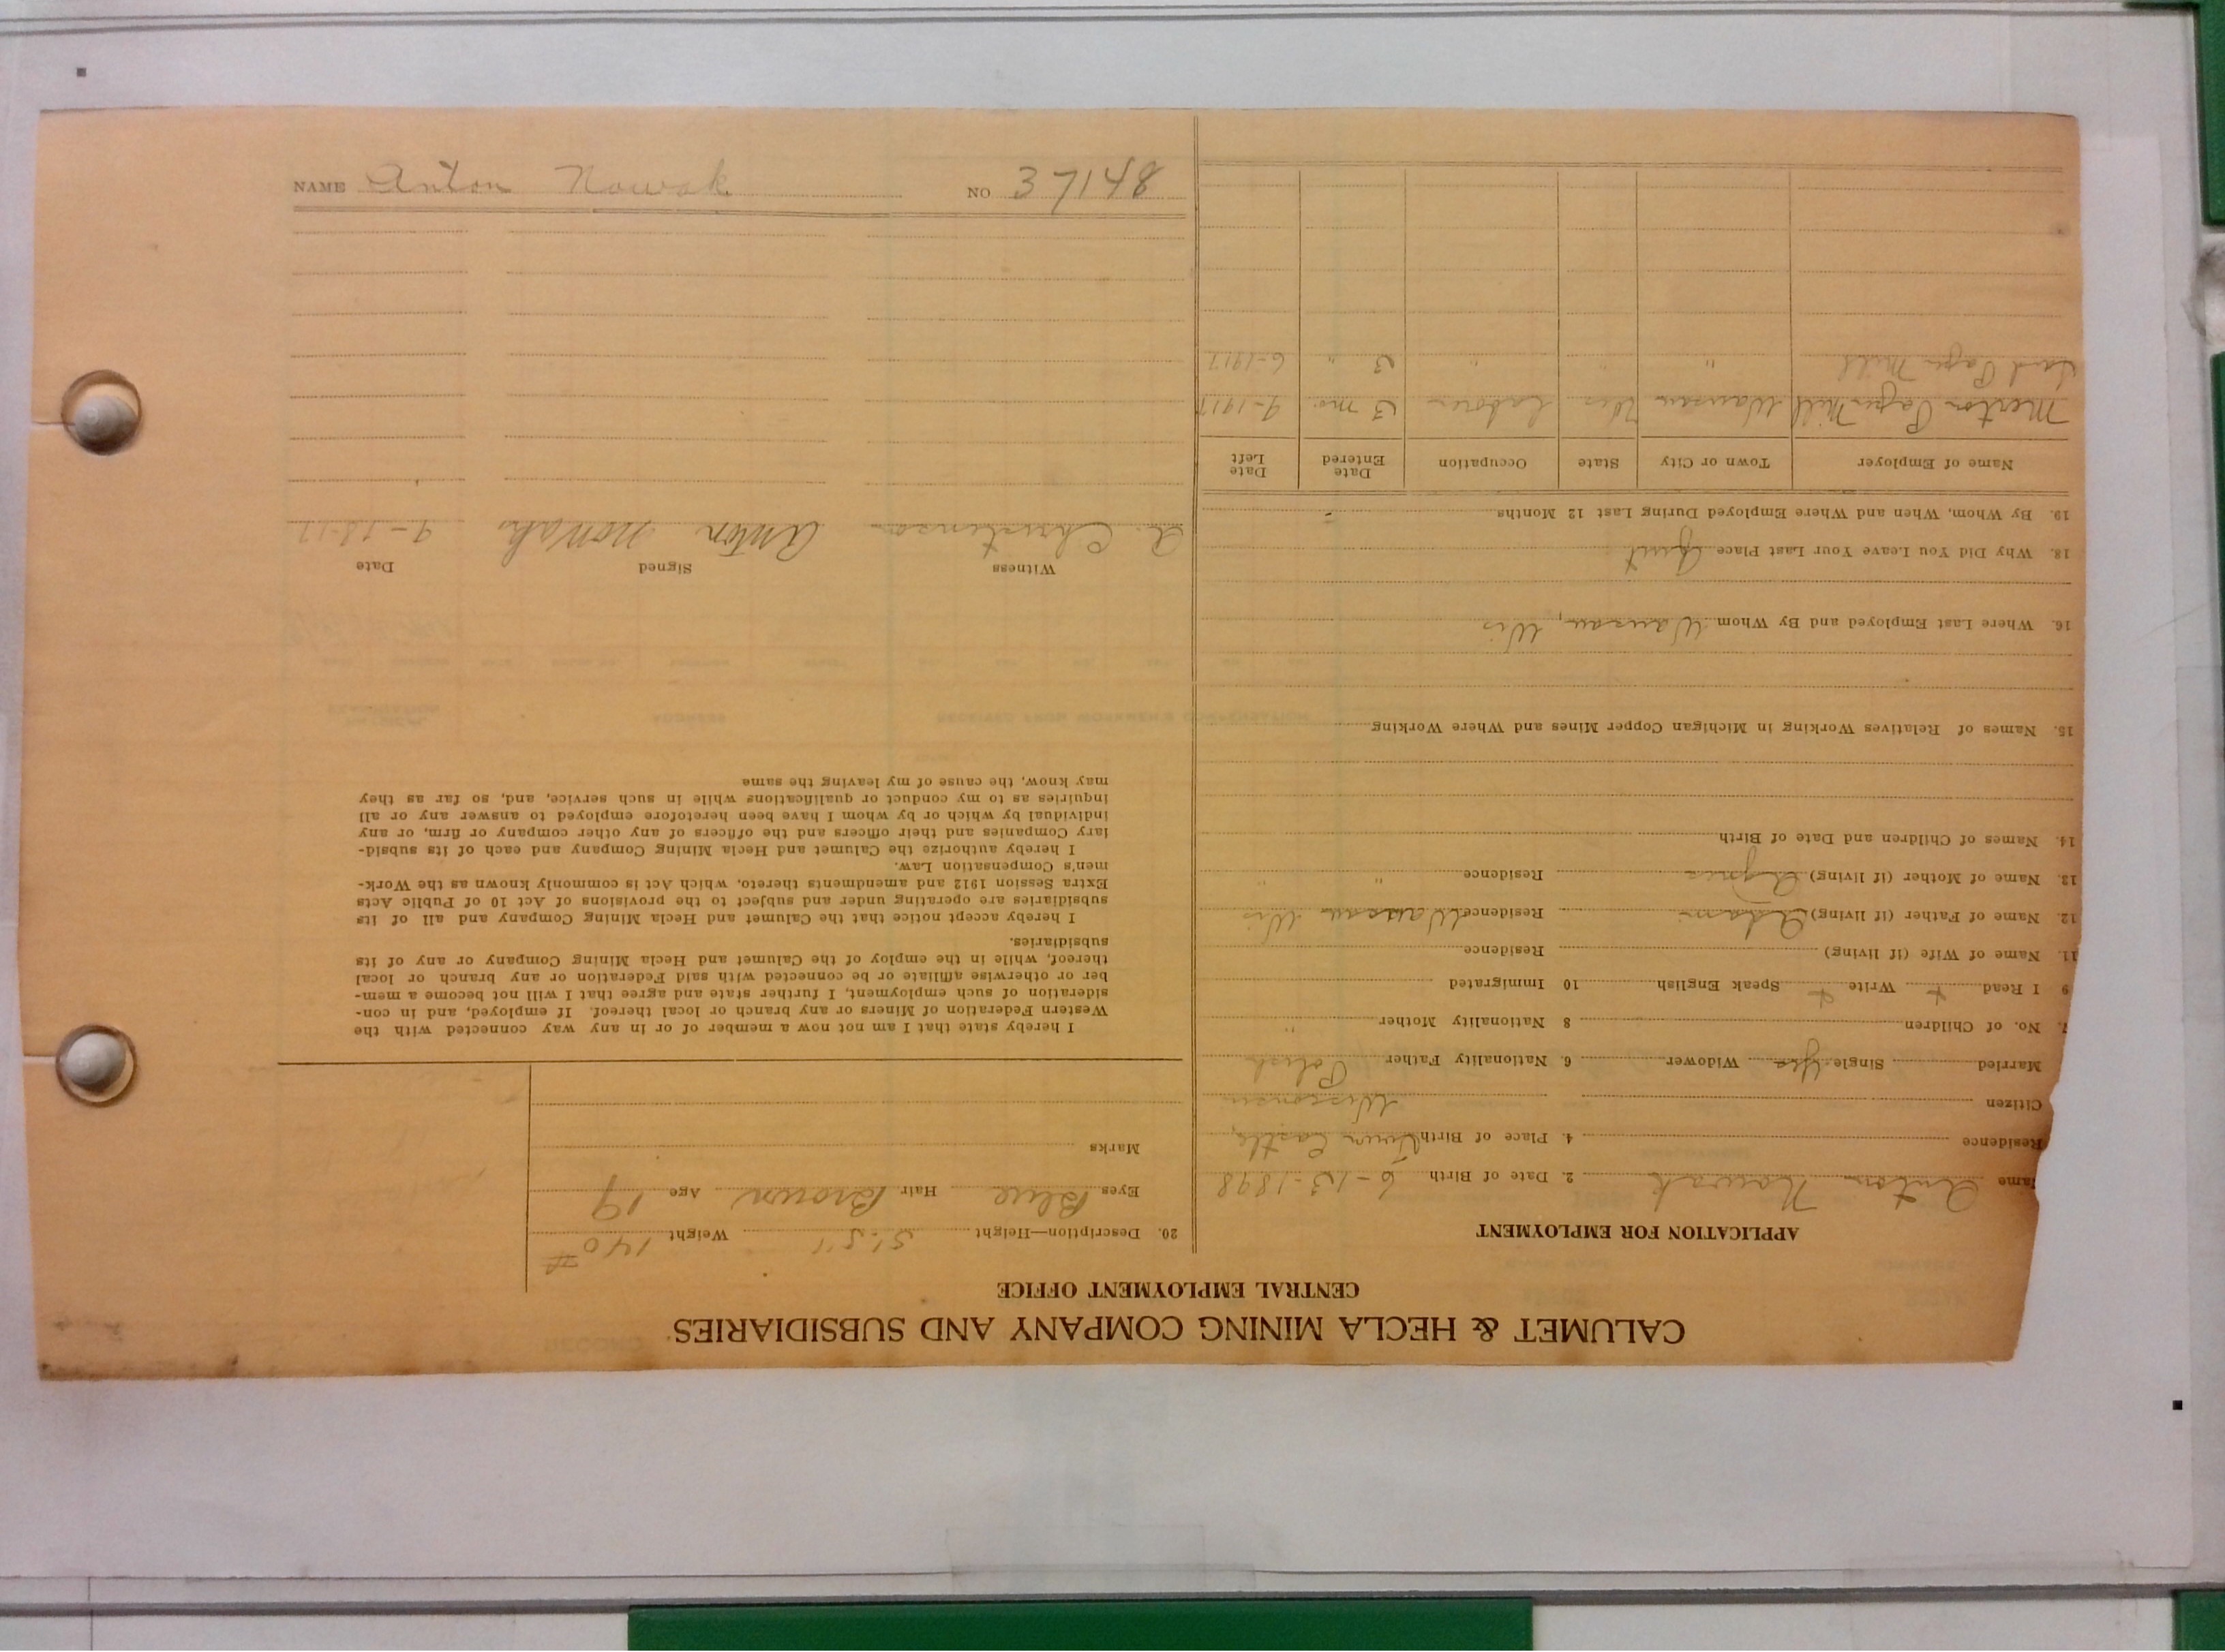 CALUMET & HECLA MINING COMPANY AND SUBSIDIARIES
CENTRAL EMPLOYMENT OFFICE
APPLICATION FOR EMPLOYMENT
Name Anton Nowak 2. Date of Birth 6-13-1898
Residence 4. Place of Birth Town Cassel,
Citizen Wisconsin
Married Single Yes Widower 6. Nationality Father Polish
7. No. of Children 8 Nationality Mother "
9 I Read + Write + Speak English 10 Immigrated
11. Name of Wife (if living) Residence
12. Name of Father (if living) Adam Residence Wausau Wis
13. Name of Mother (if living) Agnes Residence " "
14. Names of Children and Date of Birth
15. Names of Relatives Working in Michigan Copper Mines and Where Working
16. Where Last Employed and By Whom Wausau, Wis
18. Why Did You Leave Your Last Place Quit
19. By Whom, When and Where Employed During Last 12 Months
Name of Employer Town or City State Occupation Date Entered Date Left
Paper Mill Wausau Wis Laborer 3 mo. 9-1917
Paper Mill " " " 3 " 6-1917
20. Description—Height 5'.5" Weight 140 #
Eyes Blue Hair Brown Age 19
Marks
I hereby state that I am not now a member of or in any way connected with the
Western Federation of Miners or any branch or local thereof. If employed, and in con-
sideration of such employment, I further state and agree that I will not become a mem-
ber or otherwise affiliate or be connected with said Federation or any branch or local
thereof, while in the employ of the Calumet and Hecla Mining Company or any of its
subsidiaries.
I hereby accept notice that the Calumet and Hecla Mining Company and all of its
subsidiaries are operating under and subject to the provisions of Act 10 of Public Acts
Extra Session 1912 and amendments thereto, which Act is commonly known as the Work-
men's Compensation Law.
I hereby authorize the Calumet and Hecla Mining Company and each of its subsid-
iary Companies and their officers and the officers of any other company or firm, or any
individual by which or by whom I have been heretofore employed to answer any or all
inquiries as to my conduct or qualifications while in such service, and, so far as they
may know, the cause of my leaving the same
Witness Signed Date
A. Christenson Anton Nowak
NAME Anton Nowak NO 37148